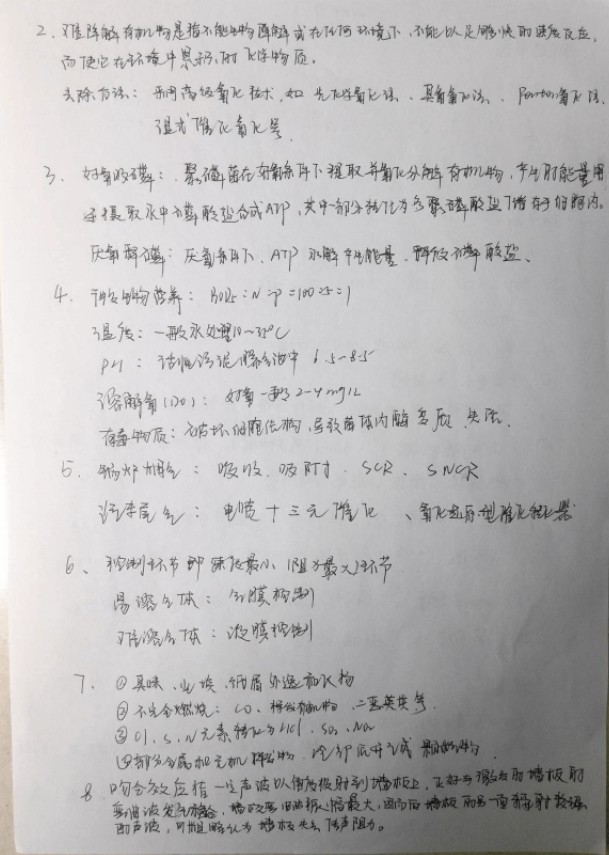 2. 难降解有机物是指不能生物降解或在任何环境下,不能以足够快的速度反应,
而使它在环境中累积的化学物质。
去除方法: 采用高级氧化技术,如 光化学氧化法、臭氧氧化法、Fenton氧化法、
湿式催化氧化等
3. 好氧吸磷: 聚磷菌在好氧条件下摄取并氧化分解有机物,产生的能量用
于摄取水中磷酸盐合成ATP,其中一部分转化为多聚磷酸盐贮存于细胞内。
厌氧释磷: 厌氧条件下、ATP 水解产生能量、释放磷酸盐、
4. 微生物营养: BOD5:N:P=100:5:1
温度: 一般水处理10~35℃
PH: 活性污泥曝气池中 6.5-8.5
溶解氧(DO): 好氧一般2-4mg/L
有毒物质: 破坏细胞结构,导致菌体内酶变质 失活.
5. 锅炉烟气: 吸收、吸附、SCR、SNCR
汽车尾气: 电喷+三元催化、氧化还原型催化转化器
6、控制环节即 速度最小(阻力最大)环节
易溶气体: 气膜控制
难溶气体: 液膜控制
7. ①臭味、尘埃、纸屑
②不完全燃烧: CO、 二噁英类等.
③Cl、S、N元素转化为HCl、SOx、NOx
④部分金属和无机
8. 吻合效应指一定声波以 投射到墙板上,正好与激发的墙板的
弯曲波发生吻合, 墙板 振幅最大,因而向墙板 另一面辐射较强
的声波,